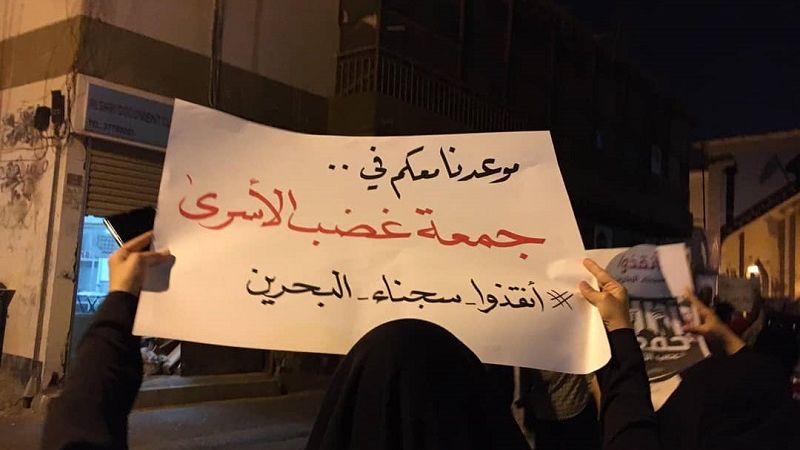 موعدنا معكم في ..
جمعة غضب الأسرى
#أنقذوا_سجناء_البحرين
أنقذوا